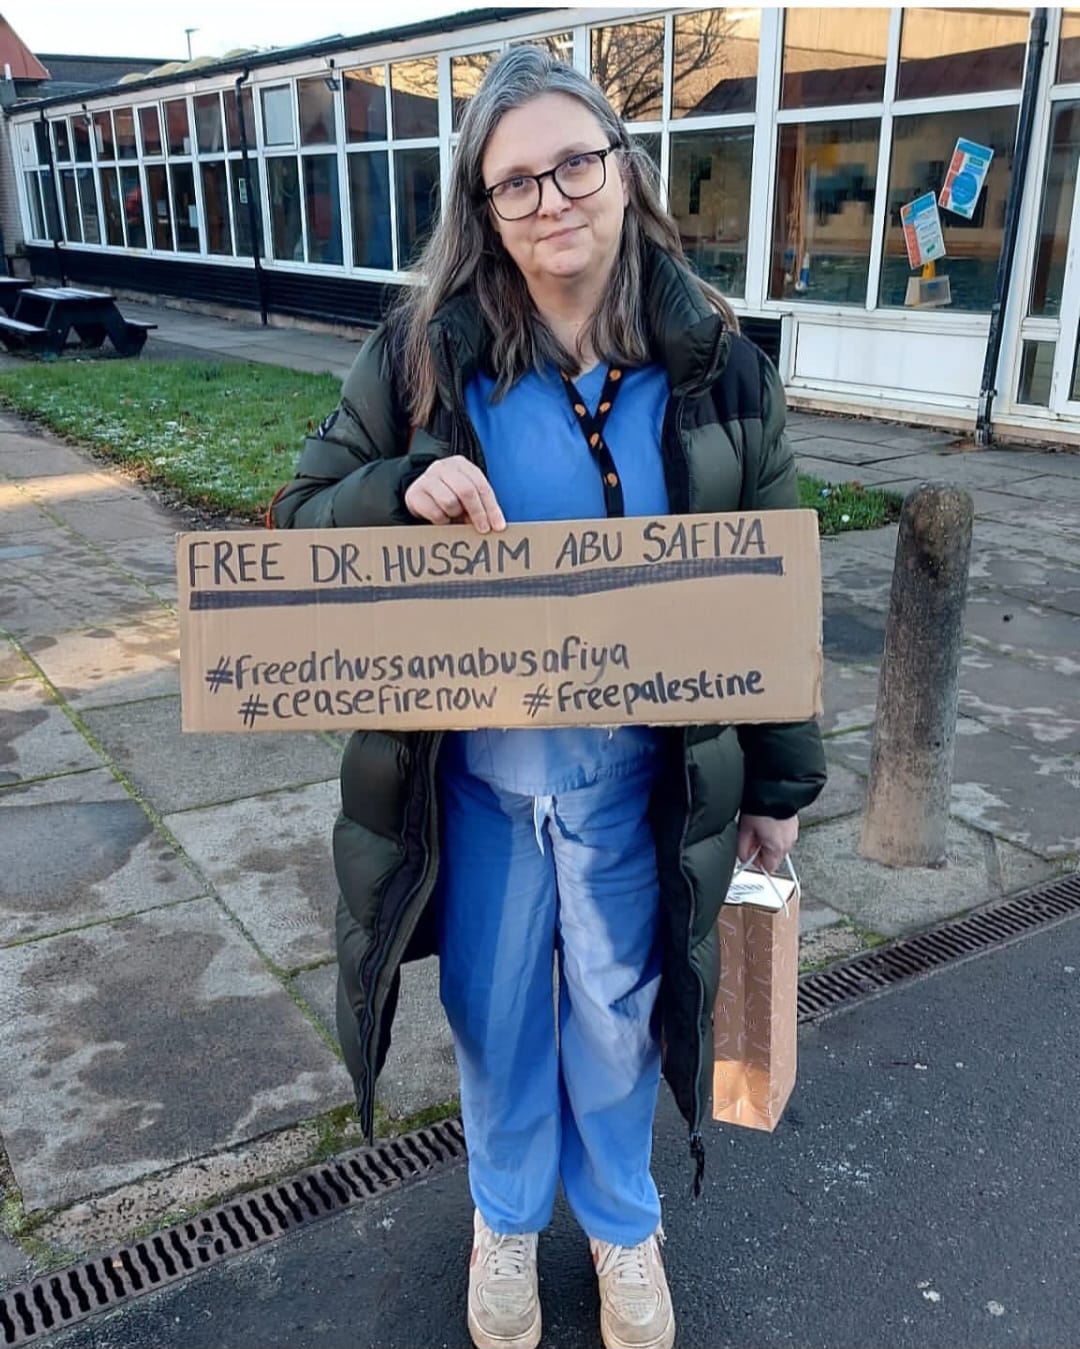 FREE DR. HUSSAM ABU SAFIYA
#freedrhussamabusafiya
#ceasefirenow #freepalestine